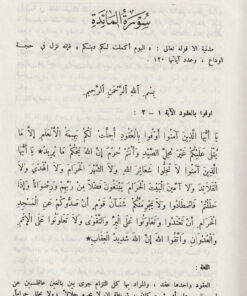 سُورَةُ المائدة
مدنية الا قوله تعالى : « اليوم أكملت لكم دينكم » فإنه نزل في حجة
الوداع ، وعدد آياتها ١٢٠ .
بِسْمِ اللهِ الرَّحْمٰنِ الرَّحِيمِ
اوفوا بالعقود الآية ١ – ٢ :
يَا أَيُّهَا الَّذِينَ آمَنُوا أَوْفُوا بِالْعُقُودِ أُحِلَّتْ لَكُمْ بَهِيمَةُ الْأَنْعَامِ إِلَّا مَا
يُتْلَى عَلَيْكُمْ غَيْرَ مُحِلِّي الصَّيْدِ وَأَنْتُمْ حُرُمٌ إِنَّ اللهَ يَحْكُمُ مَا يُرِيدُ * يَا أَيُّهَا
الَّذِينَ آمَنُوا لَا تُحِلُّوا شَعَائِرَ اللهِ وَلَا الشَّهْرَ الْحَرَامَ وَلَا الْهَدْيَ وَلَا
الْقَلَائِدَ وَلَا آمِّينَ الْبَيْتَ الْحَرَامَ يَبْتَغُونَ فَضْلًا مِنْ رَبِّهِمْ وَرِضْوَانًا وَإِذَا
حَلَلْتُمْ فَاصْطَادُوا وَلَا يَجْرِمَنَّكُمْ شَنَآنُ قَوْمٍ أَنْ صَدُّوكُمْ عَنِ الْمَسْجِدِ
الْحَرَامِ أَنْ تَعْتَدُوا وَتَعَاوَنُوا عَلَى الْبِرِّ وَالتَّقْوَى وَلَا تَعَاوَنُوا عَلَى الْإِثْمِ
وَالْعُدْوَانِ وَاتَّقُوا اللهَ إِنَّ اللهَ شَدِيدُ الْعِقَابِ *
اللغة :
العقود واحدها عقد ، والمراد بها كل التزام جرى بين بالغين عاقلين